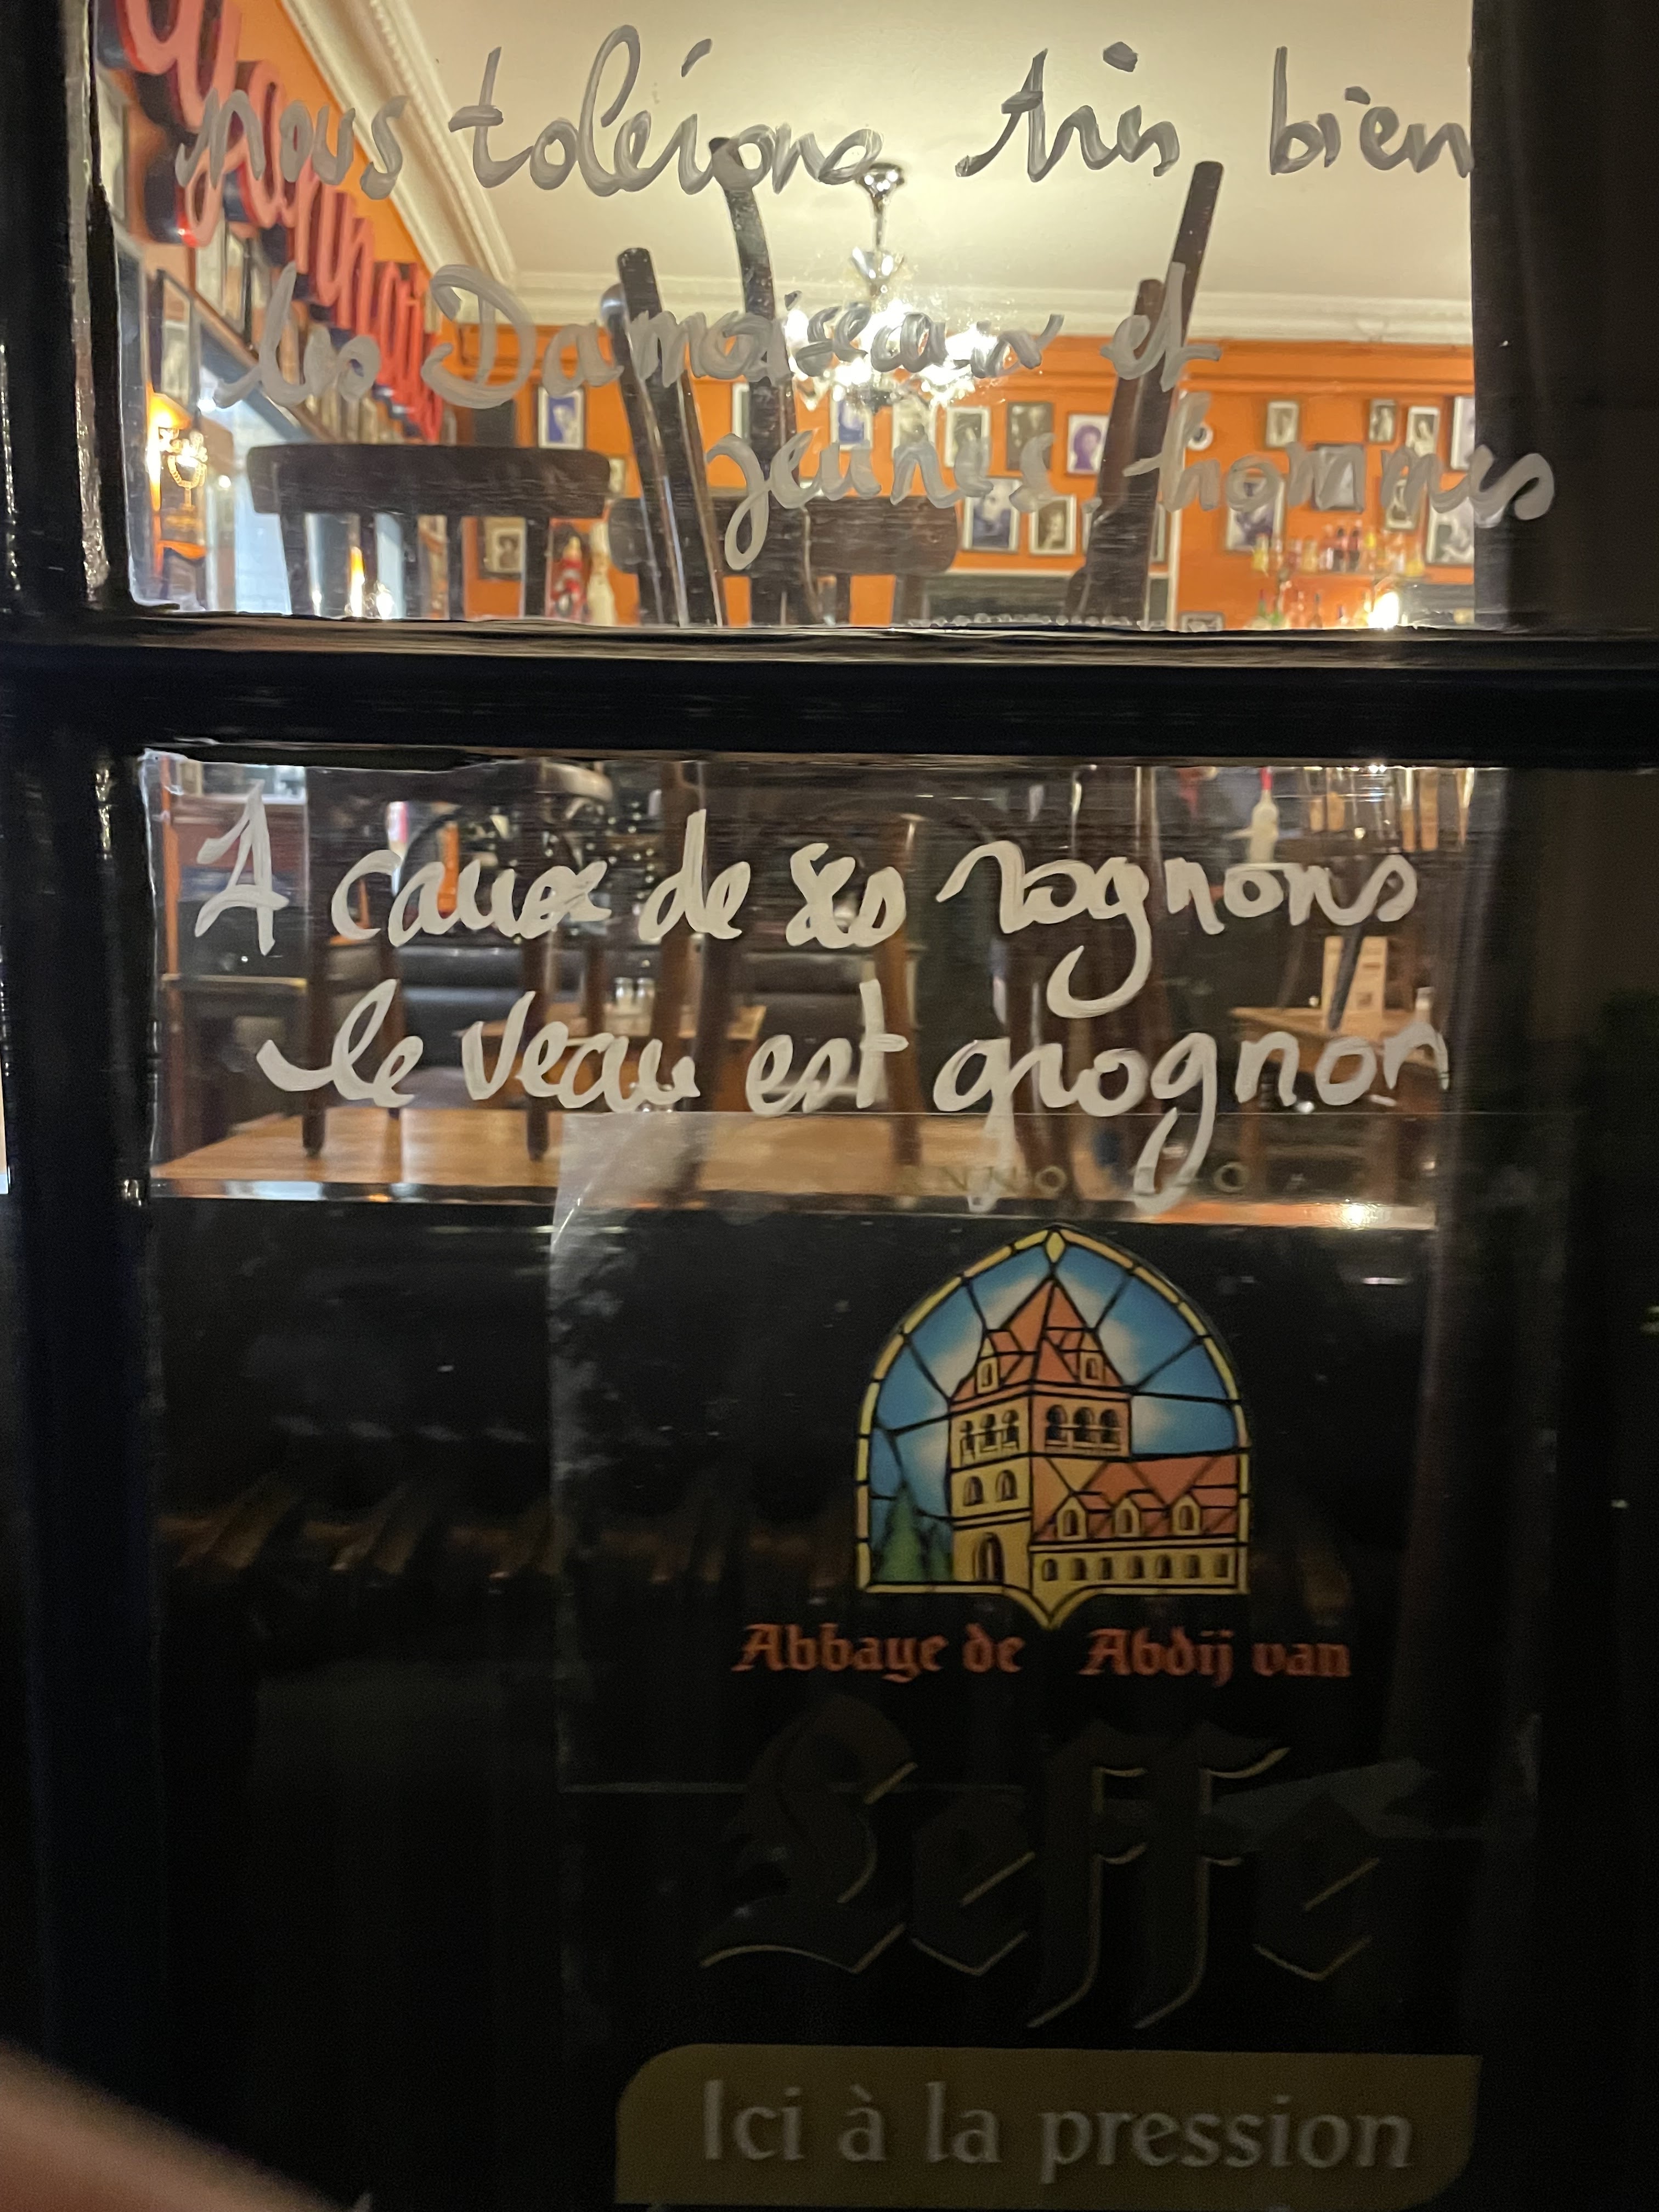 nous tolérons très bien
les Damoiseaux et
jeunes hommes
A cause de ses rognons
le veau est grognon
Abbaye de Abdij van
Leffe
Ici à la pression